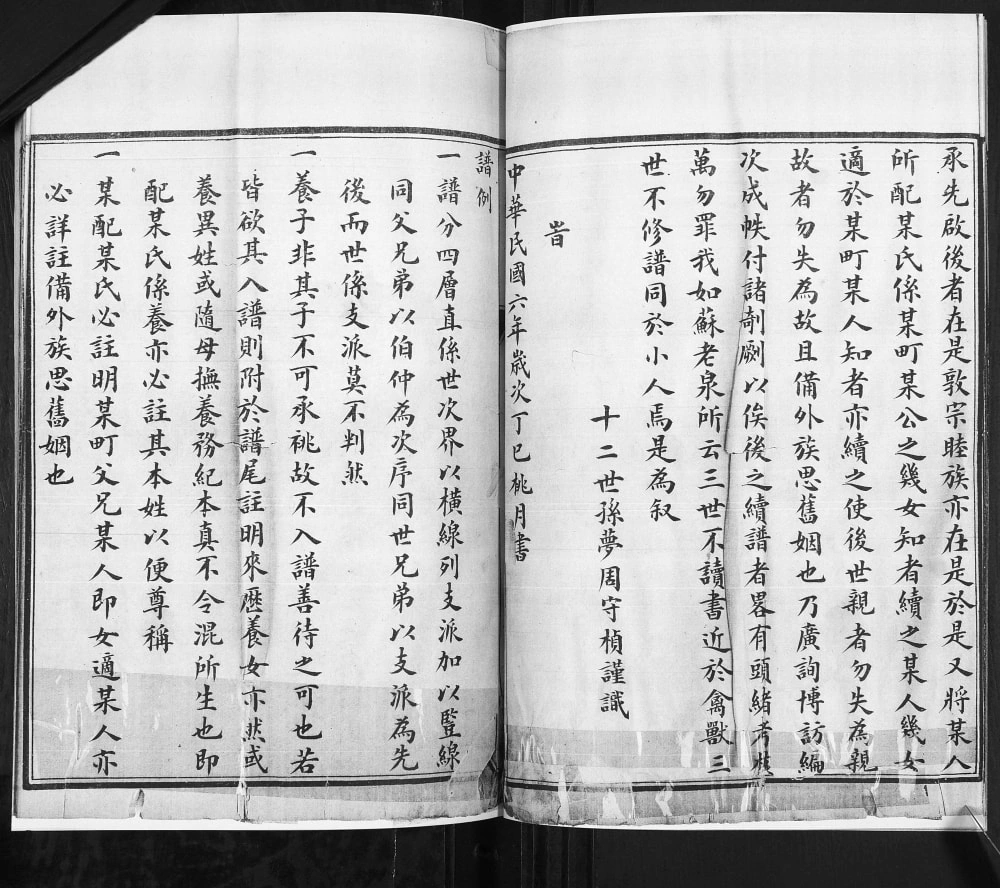 承先啟後者在是敦宗睦族亦在是於是又將某人
所配某氏係某町某公之幾女知者續之某人幾女
適於某町某人知者亦續之使後世親者勿失為親
故者勿失為故且備外族思舊姻也乃廣詢博訪編
次成帙付諸剞劂以俟後之續譜者畧有頭緒考核
萬勿罪我如蘇老泉所云三世不讀書近於禽獸三
世不修譜同於小人焉是為叙
十二世孫夢周守楨謹識
旹
中華民國六年歲次丁巳桃月書
譜例
一譜分四層直係世次界以橫線列支派加以豎線
同父兄弟以伯仲為次序同世兄弟以支派為先
後而世係支派莫不判然
一養子非其子不可承祧故不入譜善待之可也若
皆欲其入譜則附於譜尾註明來歷養女亦然或
養異姓或隨母撫養務紀本真不令混所生也即
配某氏係養亦必註其本姓以便尊稱
一某配某氏必註明某町父兄某人即女適某人亦
必詳註備外族思舊姻也